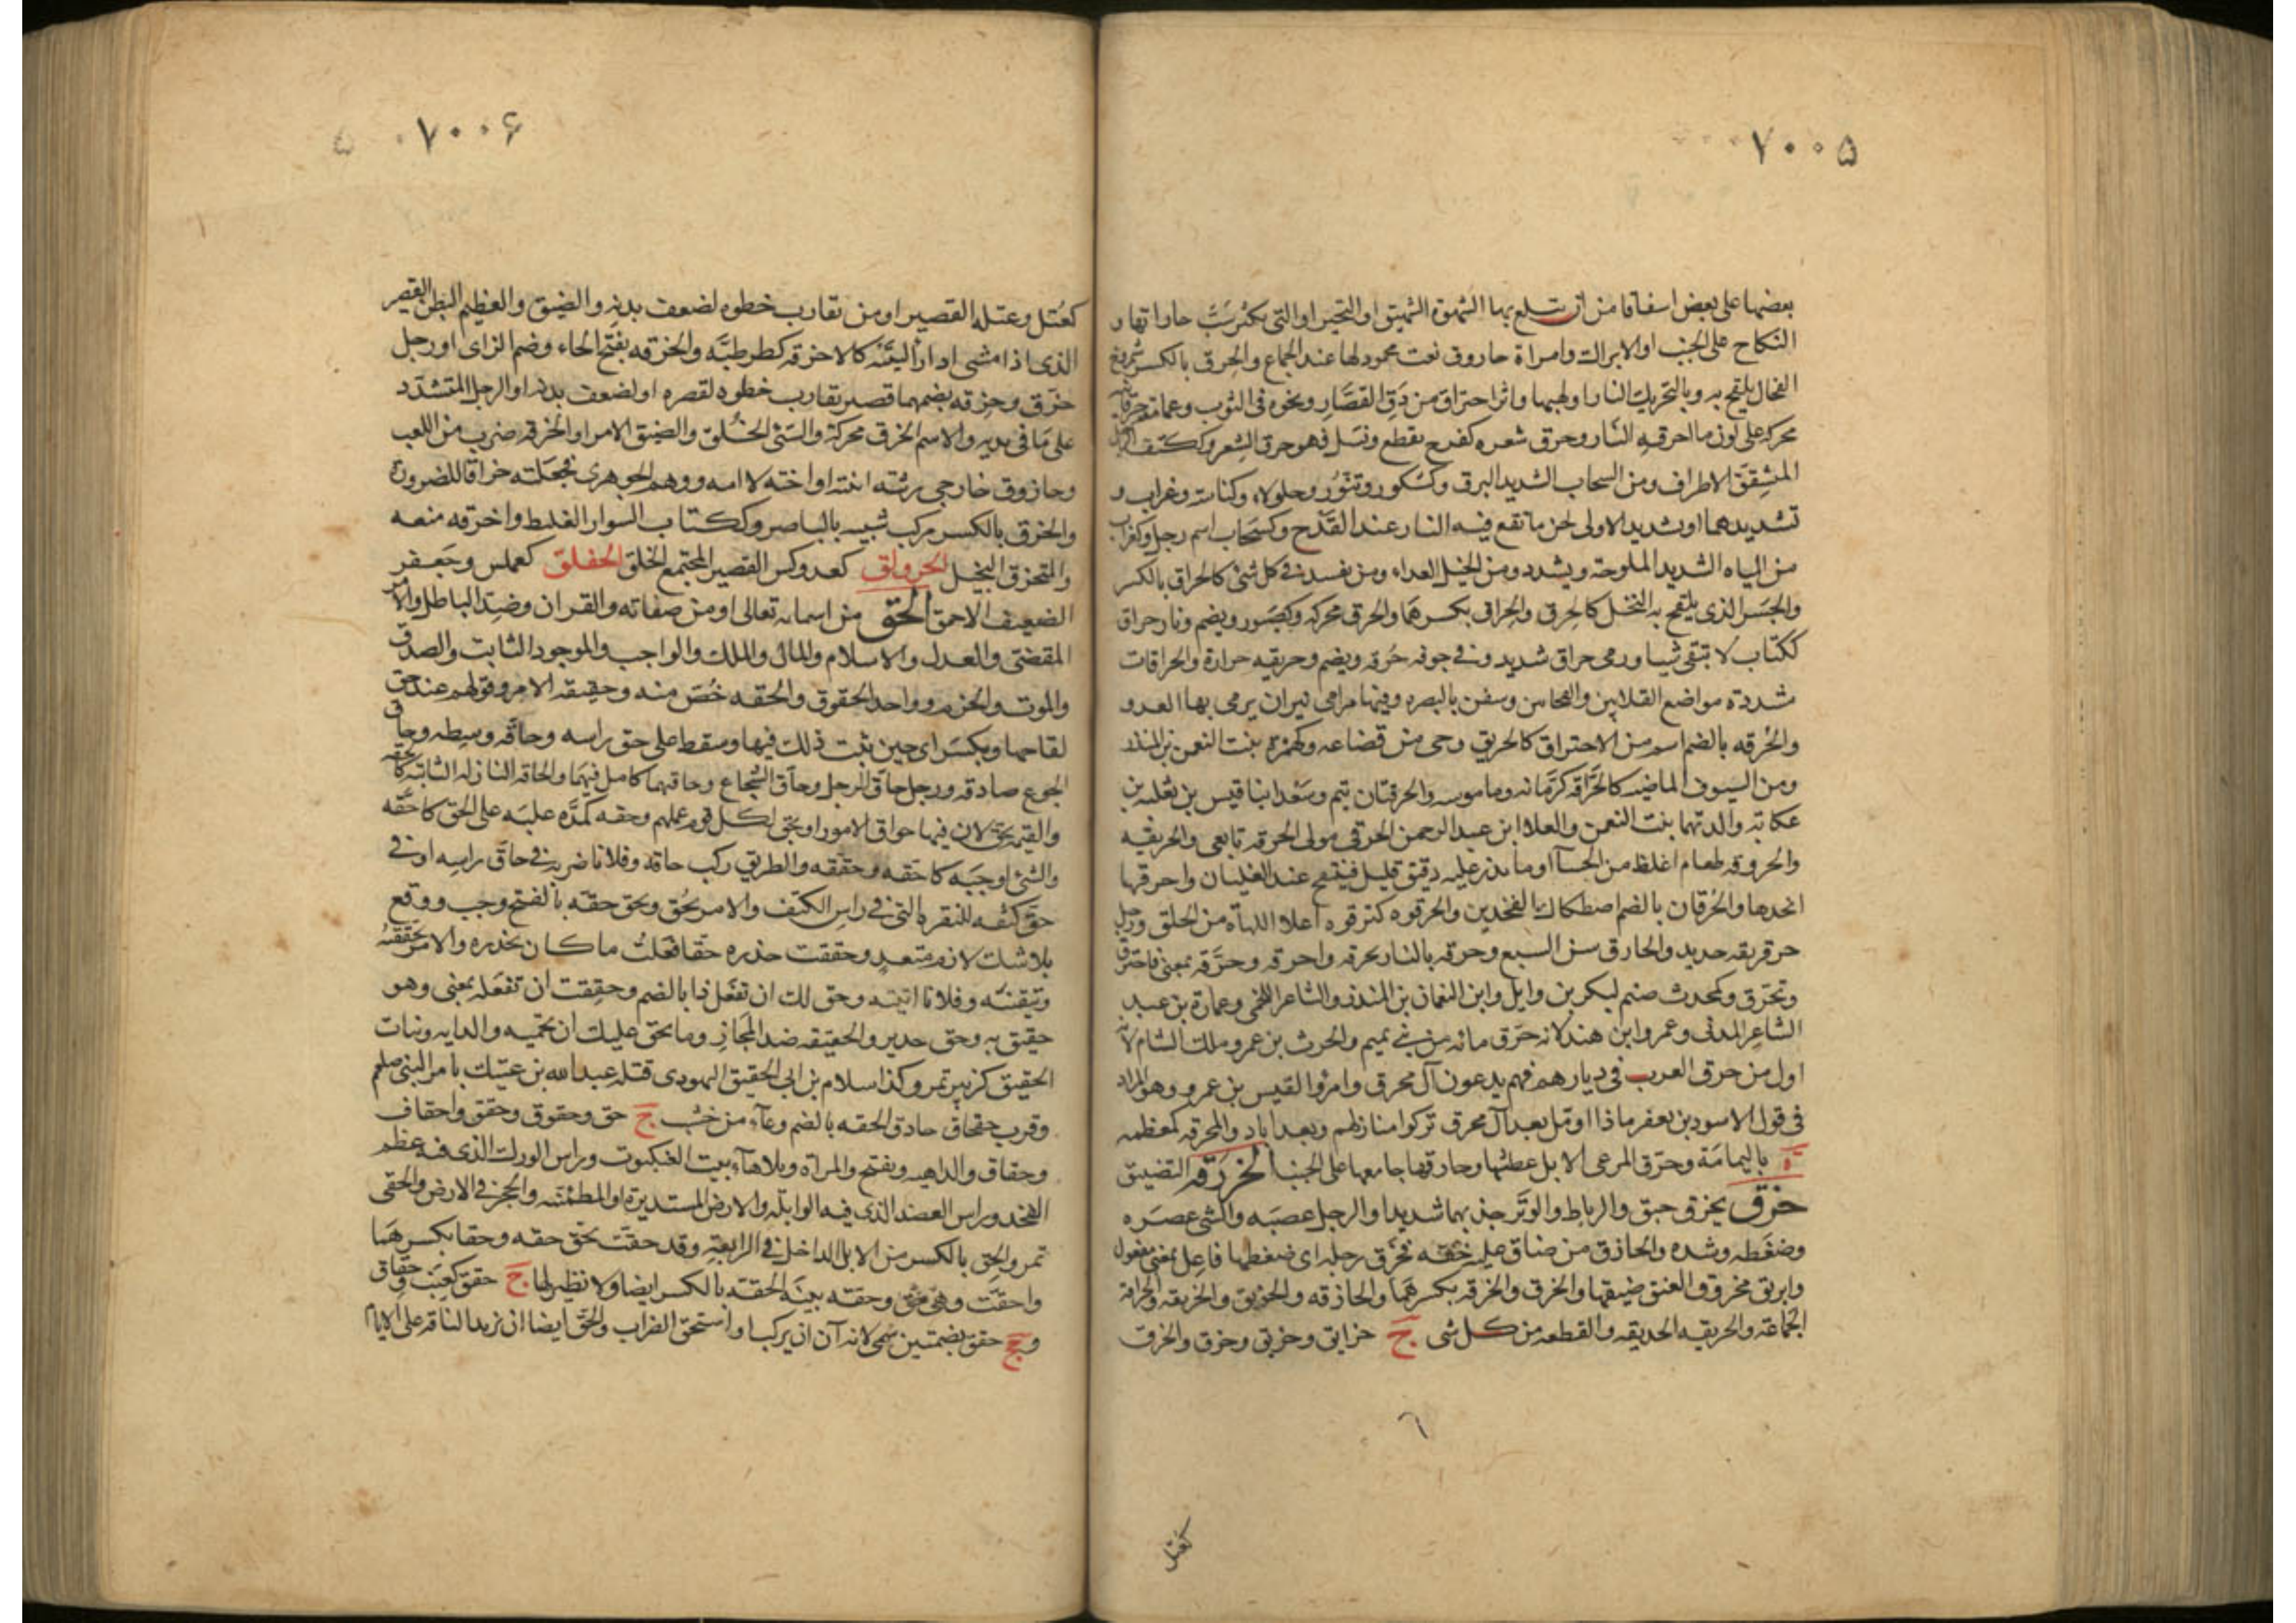 ٧٠٠۵
بعضها على بعض اسفاقا من ان تبلع بها الشهوة الشهيق او النخير او التى يكثر سَبّ جاراتها و
النكاح على الجنب او الابراك وامراة حاروق نعت محمود لها عند الجماع والحِرق بالكسر شمروخ
الفحال يلقح به وبالتحريك النار او لهبها واثر احتراق من دَقّ القصَّارِ ونحوه فى الثوب وعمامة حرقانيه
محركه على لون ما احرقته النار وحرق شعره كفرح تقطع ونسل فهو حرق الشعر وككتف
المشقق الاطراف ومن السحاب الشديد البرق وكشكور وتنّور وجلولاء وكناسة وغراب و
تشديدهما او تشديد الاولى لحن ما تقع فيه النار عند القدح وكسحاب اسم رجل وكغراب
من المياه الشديد الملوحة ويشدد ومن الخيل العداء ومن يفسد فى كل شئ كالحراق بالكسر
والجسر الذى يلقح به النخل كالحِرق والحِراق بكسرهما والحرق محركه وكصبور ويضم ونار حراق
ككتاب لا تبقى شيئا ورمى حراق شديد وفى جوفه حُرقه ويضم وحريقه حرارة والحراقات
شددة مواضع القلايين والفحامين وسفن بالبصره وفيها مرامى نيران يرمى بها العدو
والحُرقه بالضم اسم من الاحتراق كالحريق وحى من قضاعه وكهمزة بنت النعمن بن المنذر
ومن السيوف الماضيه كالحُرَّاقه كرمّانه وماموسه والحرقتان تيم وسعد ابنا قيس بن ثعلبه بن
عكابه والدتهما بنت النعمن والعلاء ابن عبد الرحمن الحرقى مولى الحرقه تابعى والحريقه
والحروقه طعام اغلظ من الحسآ او ما يذر عليه دقيق قليل فينتفخ عند الغليان واحرقها
اتخذها والحُرقان بالضم اصطكاك الفخذين والحرقوه كترقوه اعلا اللهاة من الحلق ورجل
حرقريقه حديد والحارق سن السبع وحرقه بالنار يحرقه واحرقه وحرَّقه بمعنى فاحترق
وتحرّق وكمحدث صنم لبكر بن وايل وابن النعمان بن المنذر والشاعر اللخمى وعمارة بن عبد
الشاعر المدنى وعمرو ابن هند لانه حرّق مائه من بنى تميم والحرث بن عمرو ملك الشام لانه
اول من حرق العرب فى ديارهم فهم يدعون آل محرق وامرؤ القيس بن عمرو وهو المراد
فى قول الاسود بن يعفر ماذا اومّل بعد آل محرق تركوا منازلهم وبعد اياد والمحرقه كمعظمه
ة باليمامَة وحرّق المرعى الابل عطشها وحارقها جامعها على الجنب الحزرقه التضييق
حزق يحزق حبق والرباط والوتَر جذبهما شديدا والرجل عصبَه والشى عصَره
وضغطه وشده والحازق من ضاق عليه خفّه فحزق رجله اى ضغطها فاعل بمعنى مفعول
وابريق محزوق العنق ضيقها والحزق والحزقه بكسرهما والحازقه والحزيق والحزيقه والحزاقة
الجماعة والحزيقه الحديقه والقطعه من كل شى ج حزايق وحزيق وحزق والحزق
٦
كعتل
٧٠٠۶
كعُتل وعتله القصير او من تقارب خطوه لضعف بدنه والضيق والعظيم البطن القصير
الذى اذا مشى ادار أليَتَيْه كالاحزقه كطرطبَّه والحَزقه بفتح الحاء وضم الزاى او رجل
حزق وحزقه بضمهما قصير تقارب خطوه لقصره او لضعف بدنه او الرجل المتشدد
على مَا فى يديه والاسم الحَزق محركة والسئ الخُلق والضيق الامر او الحزقه ضرب من اللعب
وحازوق خارجى رثته ابنته او اخته لا امه ووهم الجوهرى فجعلته حزاقا للضرورة
والحزق بالكسر مركب شبيه بالباصر وككتاب السوار الغليظ واحزقه منعه
والمتحزق البخيل الحزولق كعدوكس القصير المجتمع الخلق الحفلق كعملس وجعفر
الضعيف الاحمق الحق من اسمائه تعالى او من صفاته والقران وضد الباطل والامر
المقضى والعدل والاسلام والمال والملك والواجب والموجود الثابت والصدق
والموت والحزم وواحد الحقوق والحقه خُصّ منه وحقيقه الامر وقولهم عند حق
لقاحها ويكسر اى حين يثبت ذلك فيها وسقط على حق راسه وحاقّه وسطه وحاق
الجوع صادقه ورجل حاقّ الرجل وحاقّ الشجاع وحاقهما كامل فيهما والحاقه النازله الثابته كالحقه
والقيمه لان فيها حواق الامور او تحق لكل قوم عملهم وحقه كمَدّه غلبَه على الحق كاحقّه
والشئ اوجبَه كاحقّه وحقّقه والطريق ركب حاقه وفلانا ضربه فى حاقّ راسه او فى
حقّ كتفه للنقره التى فى راس الكتف والامر يحُق ويحِق حقّه بالفتح وجب ووقع
بلا شك لازم متعد وحققت حذره حقّا فعلت ما كان يحذره والامر تحققته
وتيقنته وفلانا اتيته وحق لك ان تفعل ذا بالضم وحققت ان تفعله بمعنى وهو
حقيق به وحق جدير والحقيقه ضد المجاز وما يحق عليك ان تحميه والرايه وبنات
الحقيق كزبير تمر وكذا سلام بن ابى الحقيق اليهودى قتله عبد الله بن عتيك بامر النبى صلعم
وقرب حقحاق جاد والحقه بالضم وعآء من خشب ج حق وحقوق وحقق واحقاف
وحقاق والداهيه ويفتح والمراة وبلا هاء بيت العنكبوت وراس الورك الذى فيه عظم
الفخذ وراس العضد الذى فيه الوابله والارض المستديرة او المطمئنه والحجر فى الارض والحقى
تمر والحِق بالكسر من الابل الداخل فى الرابعه وقد حقت تحق حقه وحقا بكسرهما
واحقّت وهى حق وحقه بينه الحقه بالكسر ايضا ولا نظير لها ج حقق كعنب وحقاق
وجج حقق بضمتين سمى لانه آن ان يركب او استحق الضراب والحق ايضا ان تزيد الناقه على الايام